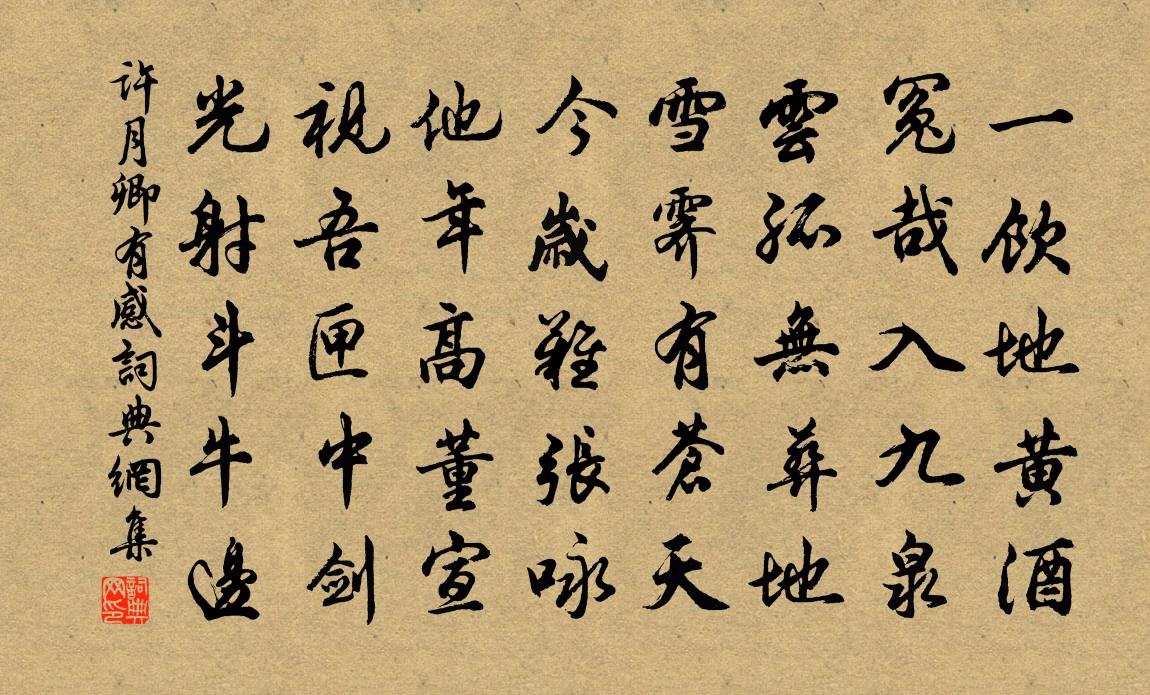 一飲地黃酒
冤哉入九泉
雲孤無葬地
雪霽有蒼天
今歲難張咏
他年高董宣
視吾匣中劍
光射斗牛邊
許月卿有感詞典網集
詞典網印